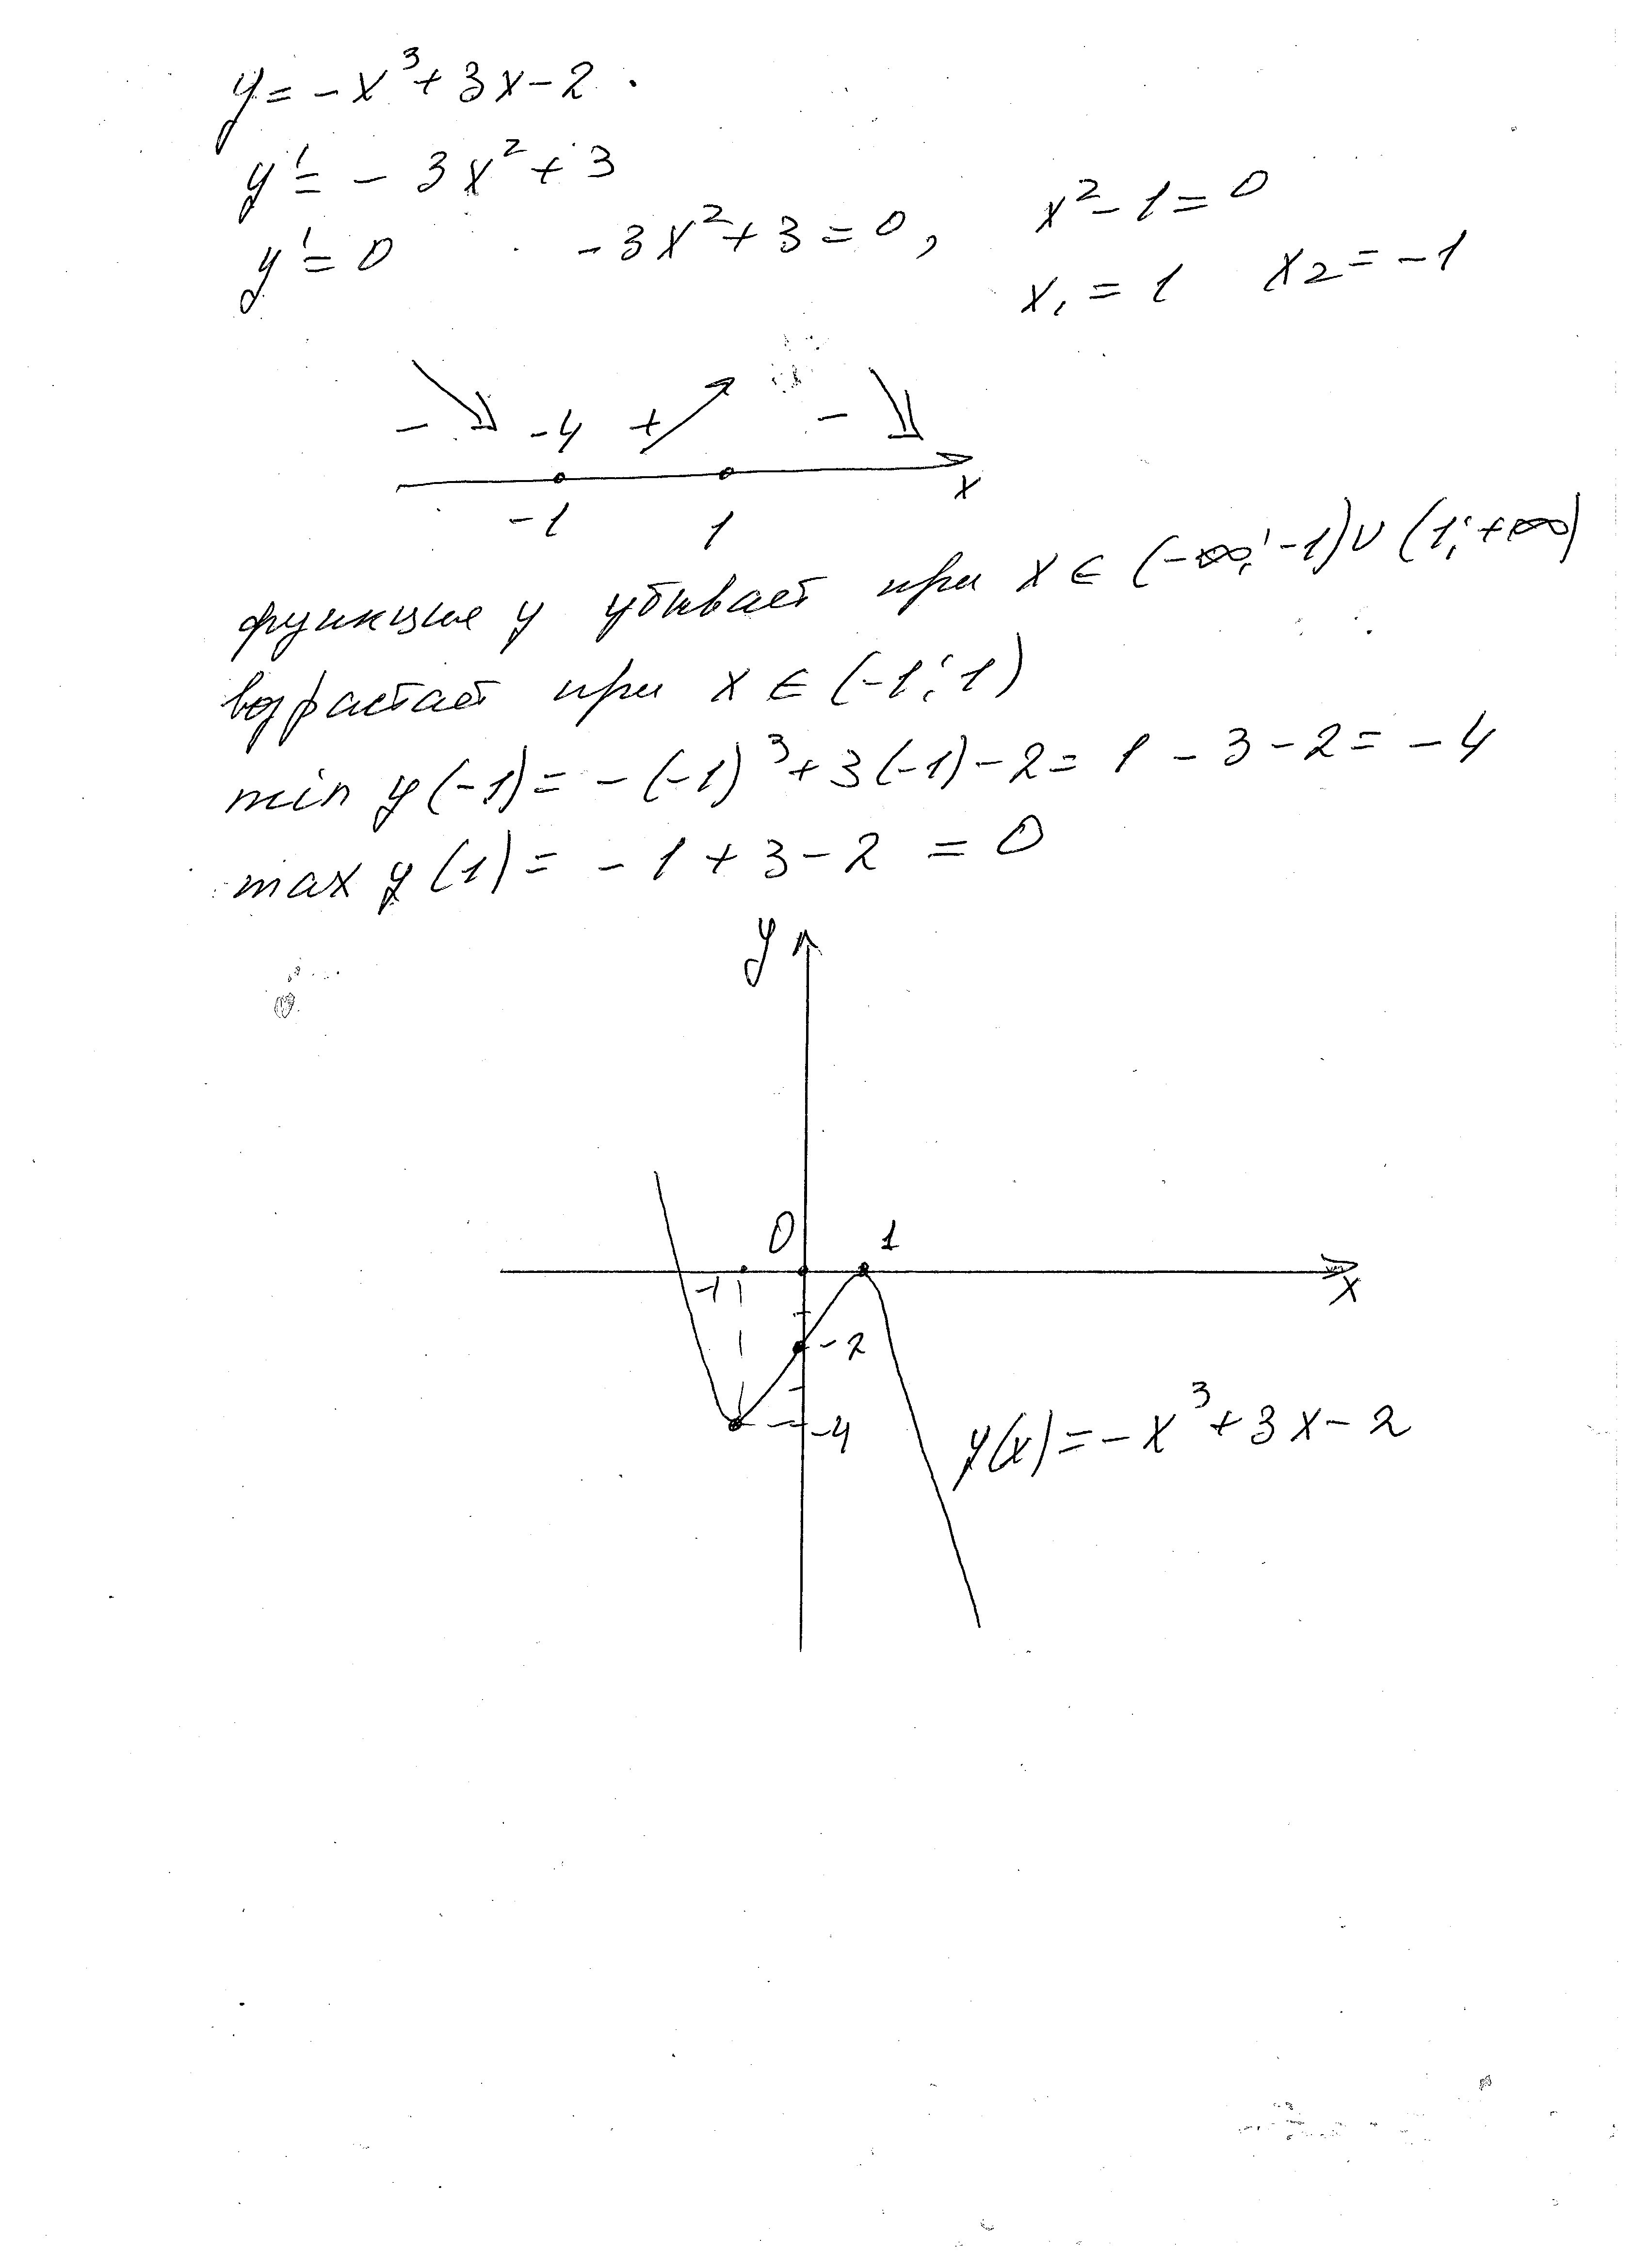 y = -x³ + 3x - 2.
y' = - 3x² + 3
y' = 0   -3x² + 3 = 0,   x² - 1 = 0
x₁ = 1   x₂ = -1
- -4 + -
-1 1 x
функция y убывает при x ∈ (-∞; -1) ∪ (1; +∞)
возрастает при x ∈ (-1; 1)
min y(-1) = -(-1)³ + 3(-1) - 2 = 1 - 3 - 2 = -4
max y(1) = -1 + 3 - 2 = 0
y
0 1
-1 x
-2
-4
y(x) = -x³ + 3x - 2